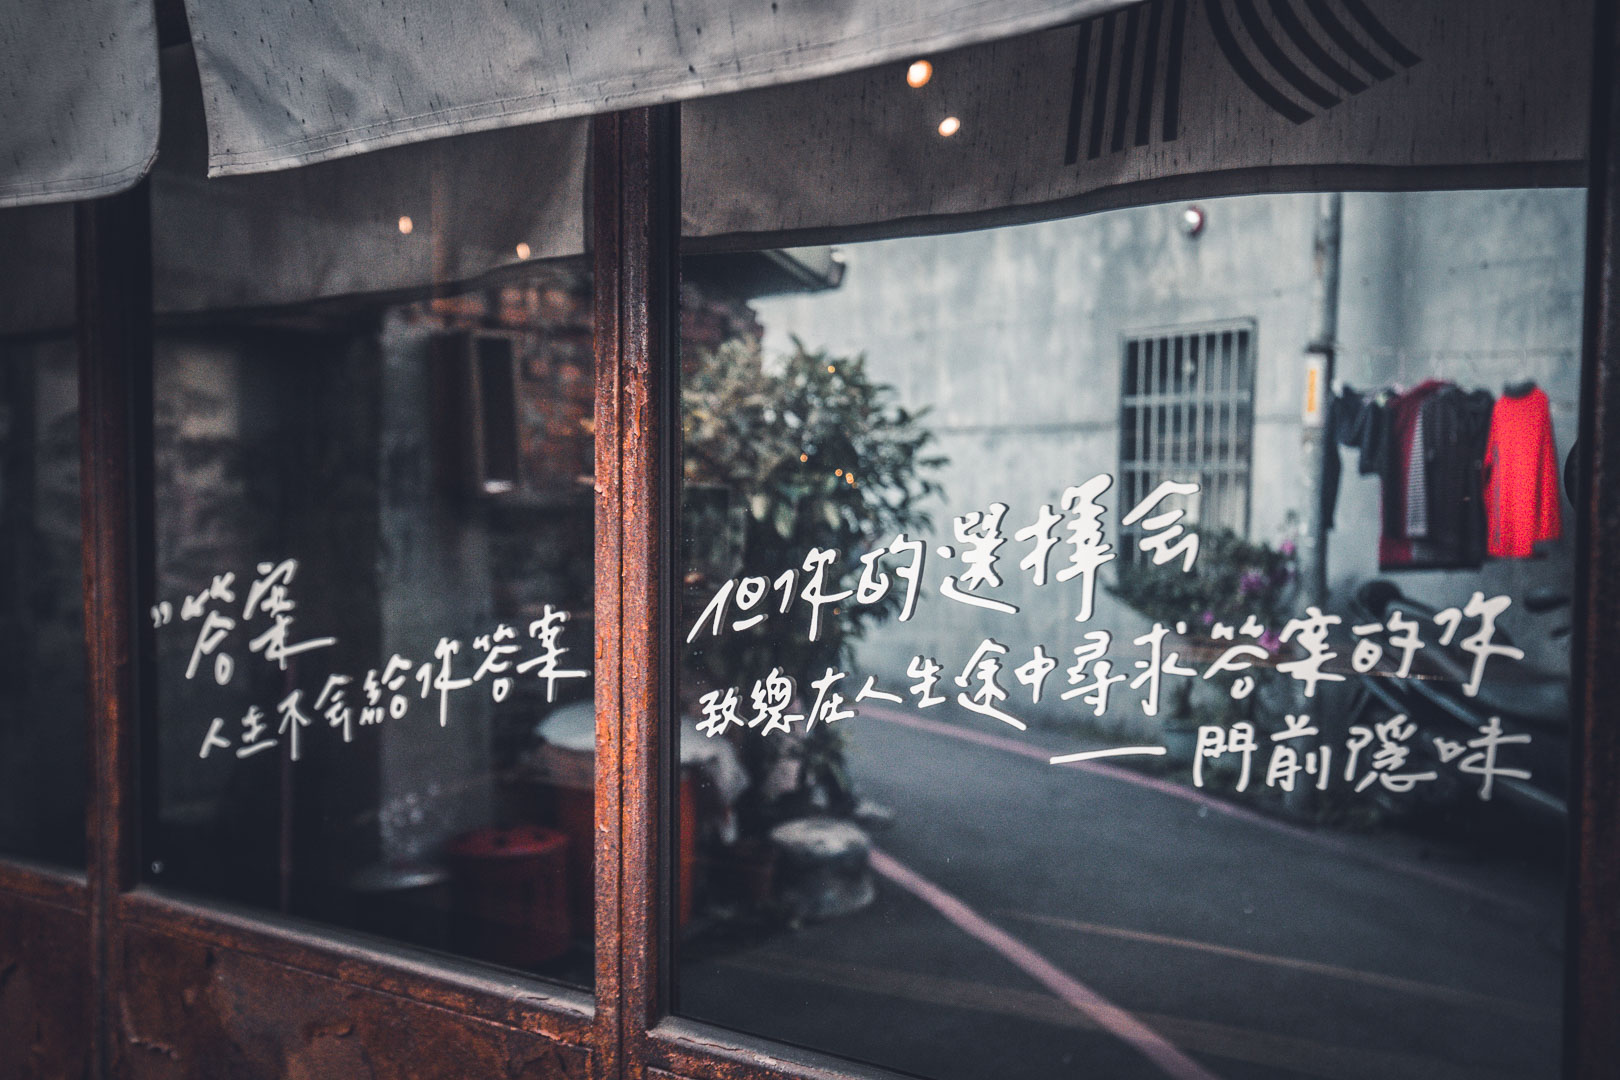 ”答案
人生不会給你答案
但你的選擇会
致總在人生途中尋求答案的你
——門前隱味